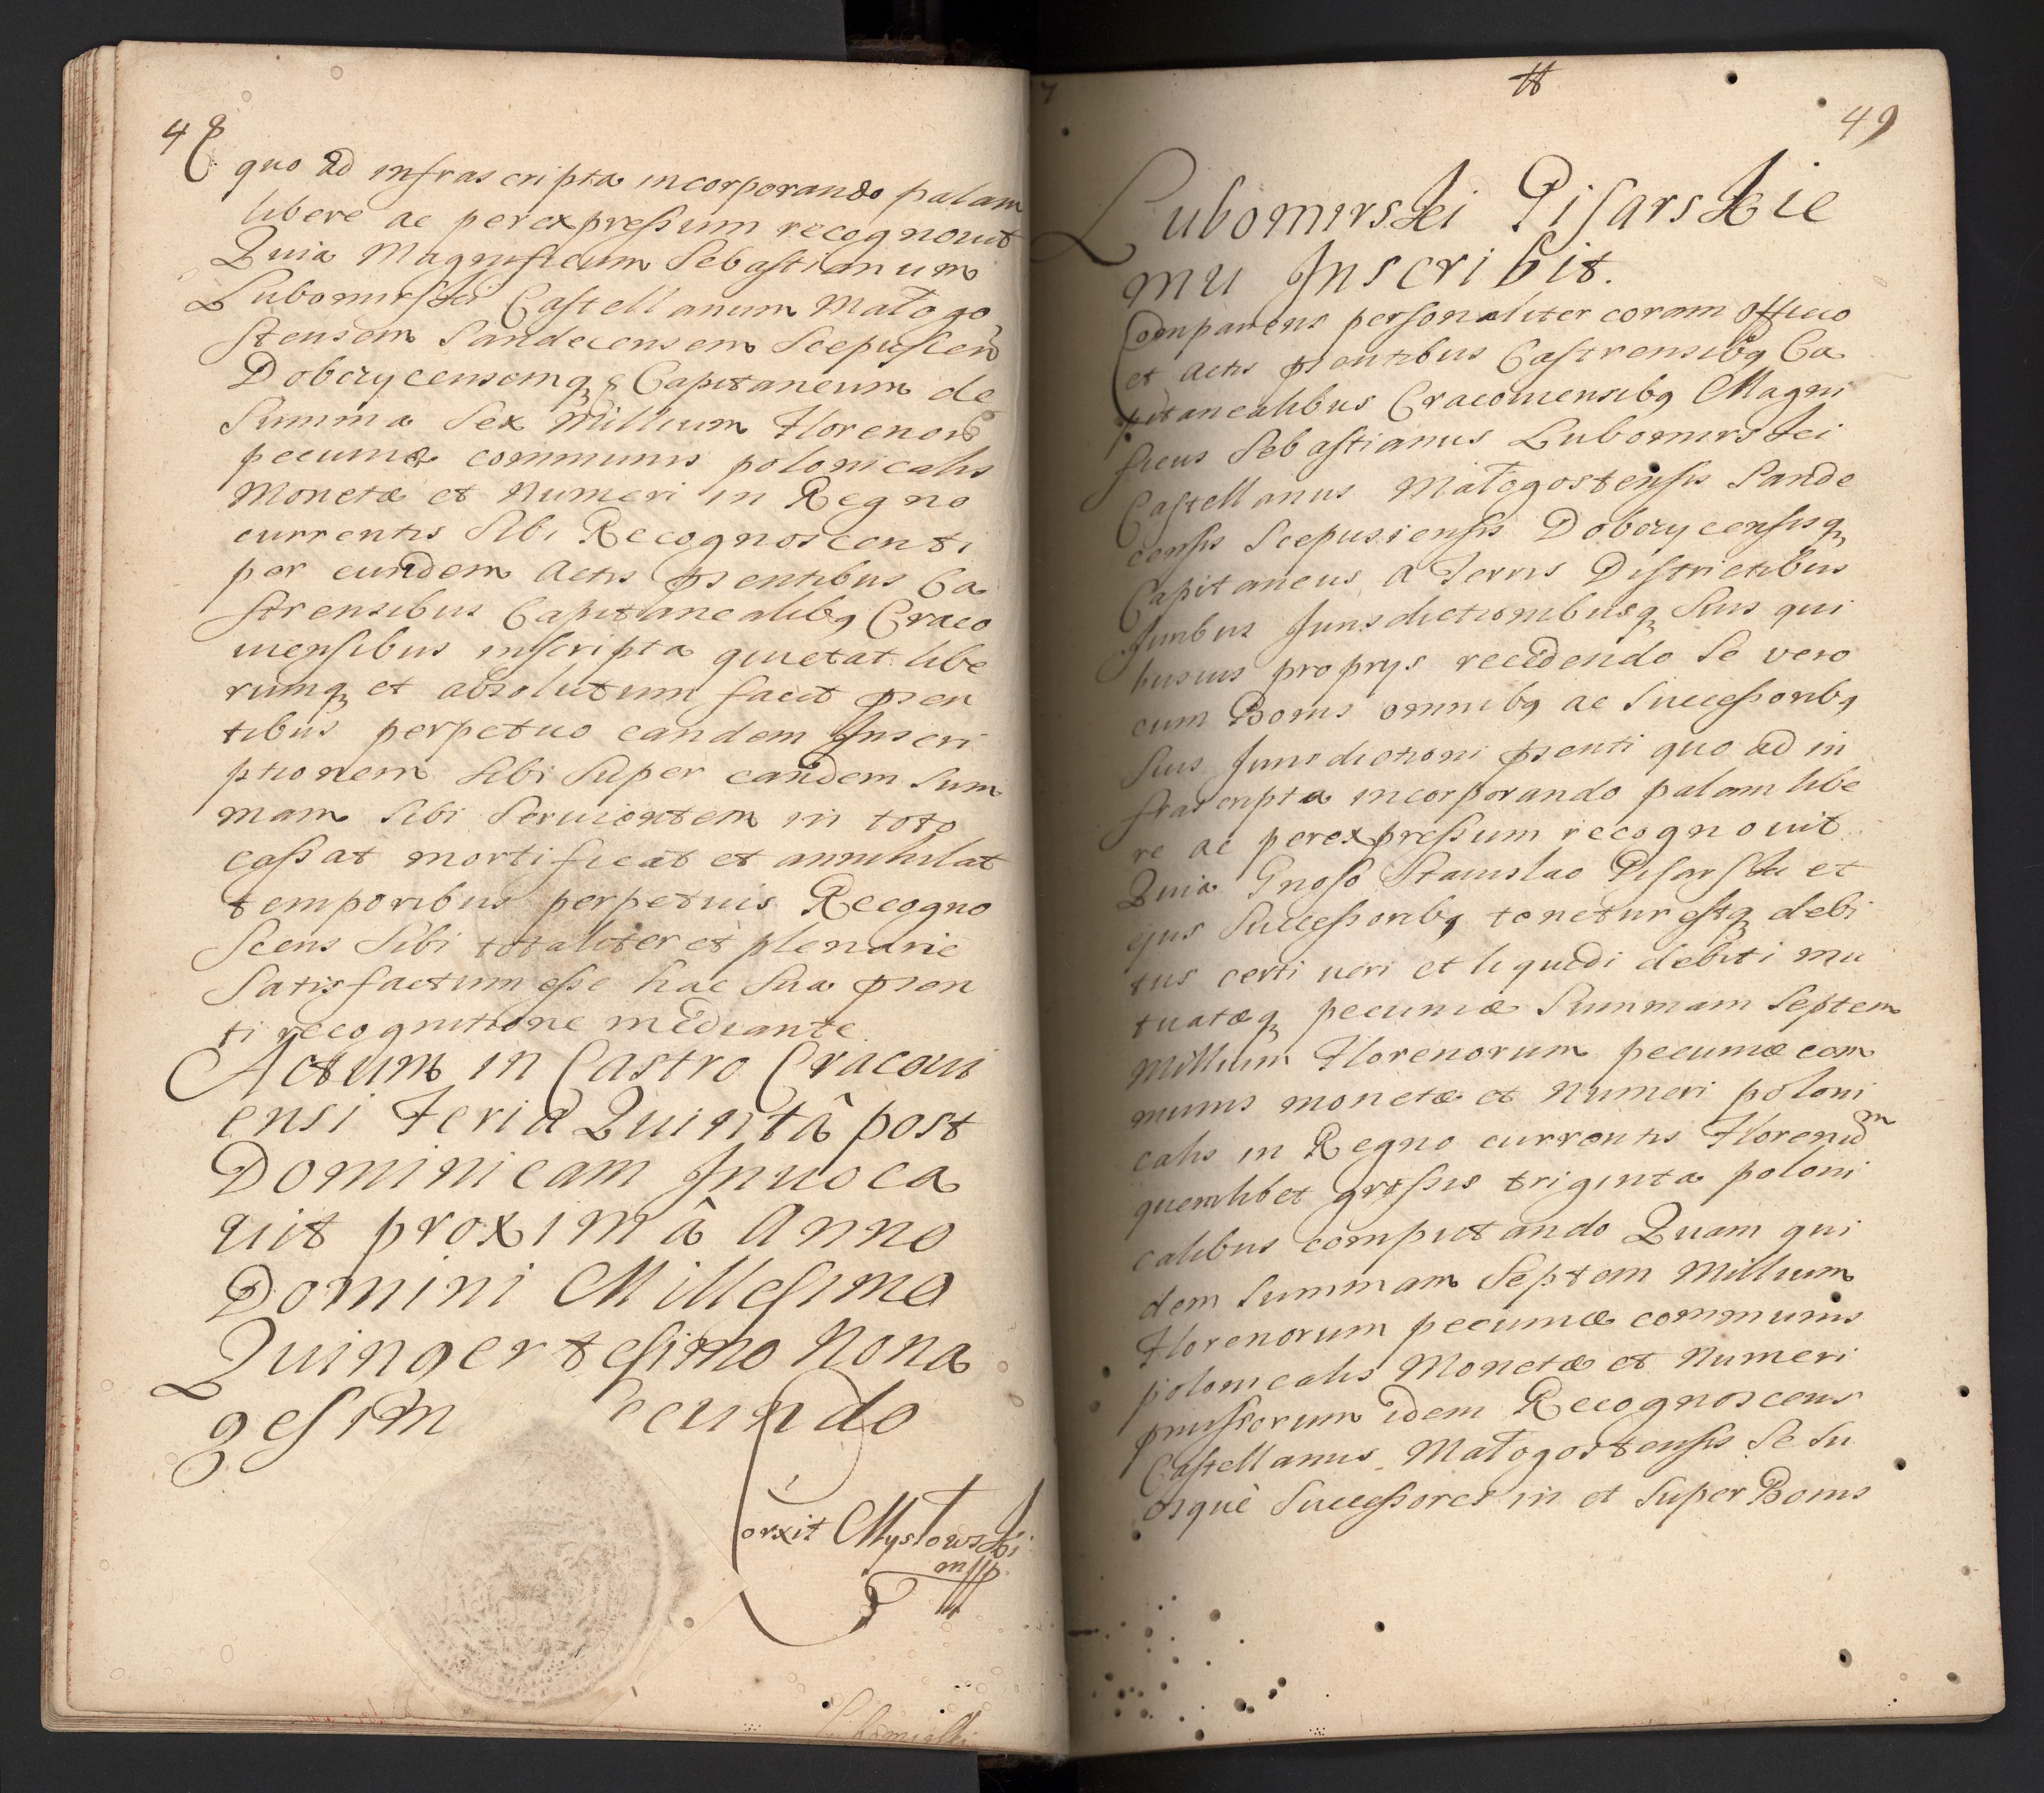 48
quo ad infrascripta incorporando palam
libere ac per expressum recognovit
Quia Magnificum Sebastianum
Lubomirski Castellanum Małogo
stensem Sandecensem Scepusien
Dobczycensemq; Capitaneum de
Summa Sex Millium Florenor
pecuniæ communis polonicalis
Monetæ et Numeri in Regno
currentis Sibi Recognoscenti
per eundem Actis pntibus Ca
strensibus Capitanealibq Craco
uiensibus inscripta quietat libe
rumq; et absolutum facit præn
tibus perpetuo eandem Inscri
ptionem Sibi Super eandem Sum
mam Sibi Seruientem in toto
cassat mortificat et annihilat
temporibus perpetuis Recogno
scens Sibi totaliter et plenarie
Satisfactum esse hac Sua præn
ti recognitione mediante
Actum in Castro Cracoui
ensi Feria Quintâ post
Dominicam Inuoca
uit proximâ Anno
Domini Millesimo
Quingentesimo Nona
gesim ecundo
orxit Mysłowski
mpp
49
Lubomirski Pisarskie
mu Inscribit.
Comparens personaliter coram Officio
et Actis pntibus Castrensibq Ca
pitanealibus Cracouiensibq Magni
ficus Sebastianus Lubomirski
Castellanus Małogostensis Sande
censis Scepusiensis Dobczycensisq;
Capitaneus a Terris Districtibus
Juribus Jurisdictionibusq; Suis qui
busuis proprys recedendo Se vero
cum Bonis omnibq ac Successoribq
Suis Jurisdictioni pnti quo ad in
frascripta incorporando palam libe
re ac per expressum recognouit
Quia Gnoso Stanislao Pisarski et
ejus Successoribq tenetur estq; debi
tus certi ueri et liquidi debiti mu
tuatæq; pecuniæ Summam Septem
Millium Florenorum pecuniæ com
munis monetæ et numeri poloni
calis in Regno currentis Florenum
quemlibet grossis triginta poloni
calibus computando Quam qui
dem Summam Septem Millium
Florenorum pecuniæ communis
polonicalis Monetæ et Numeri
pmissorum idem Recognoscens
Castellanus Małogostensis Se Su
osque Successores in et Super Bonis